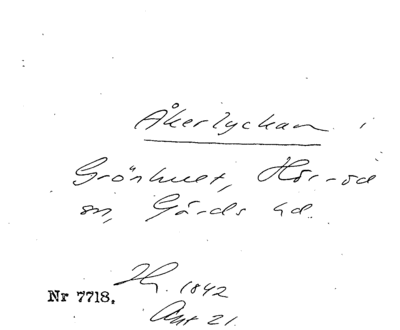 Åkerlyckan i
Grönhult, Hörröd
sn, Gärds hd.
Hy. 1842
Nr 7718.
Akt 21.